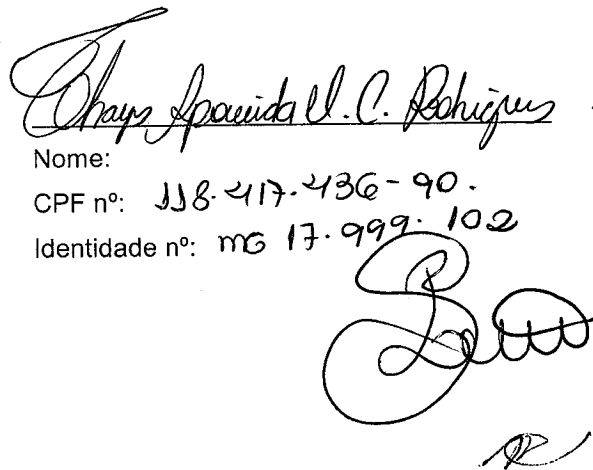 Thays Aparecida U. C. Rodrigues
Nome:
CPF nº: 118.417.436-90.
Identidade nº: MG 17.999.102